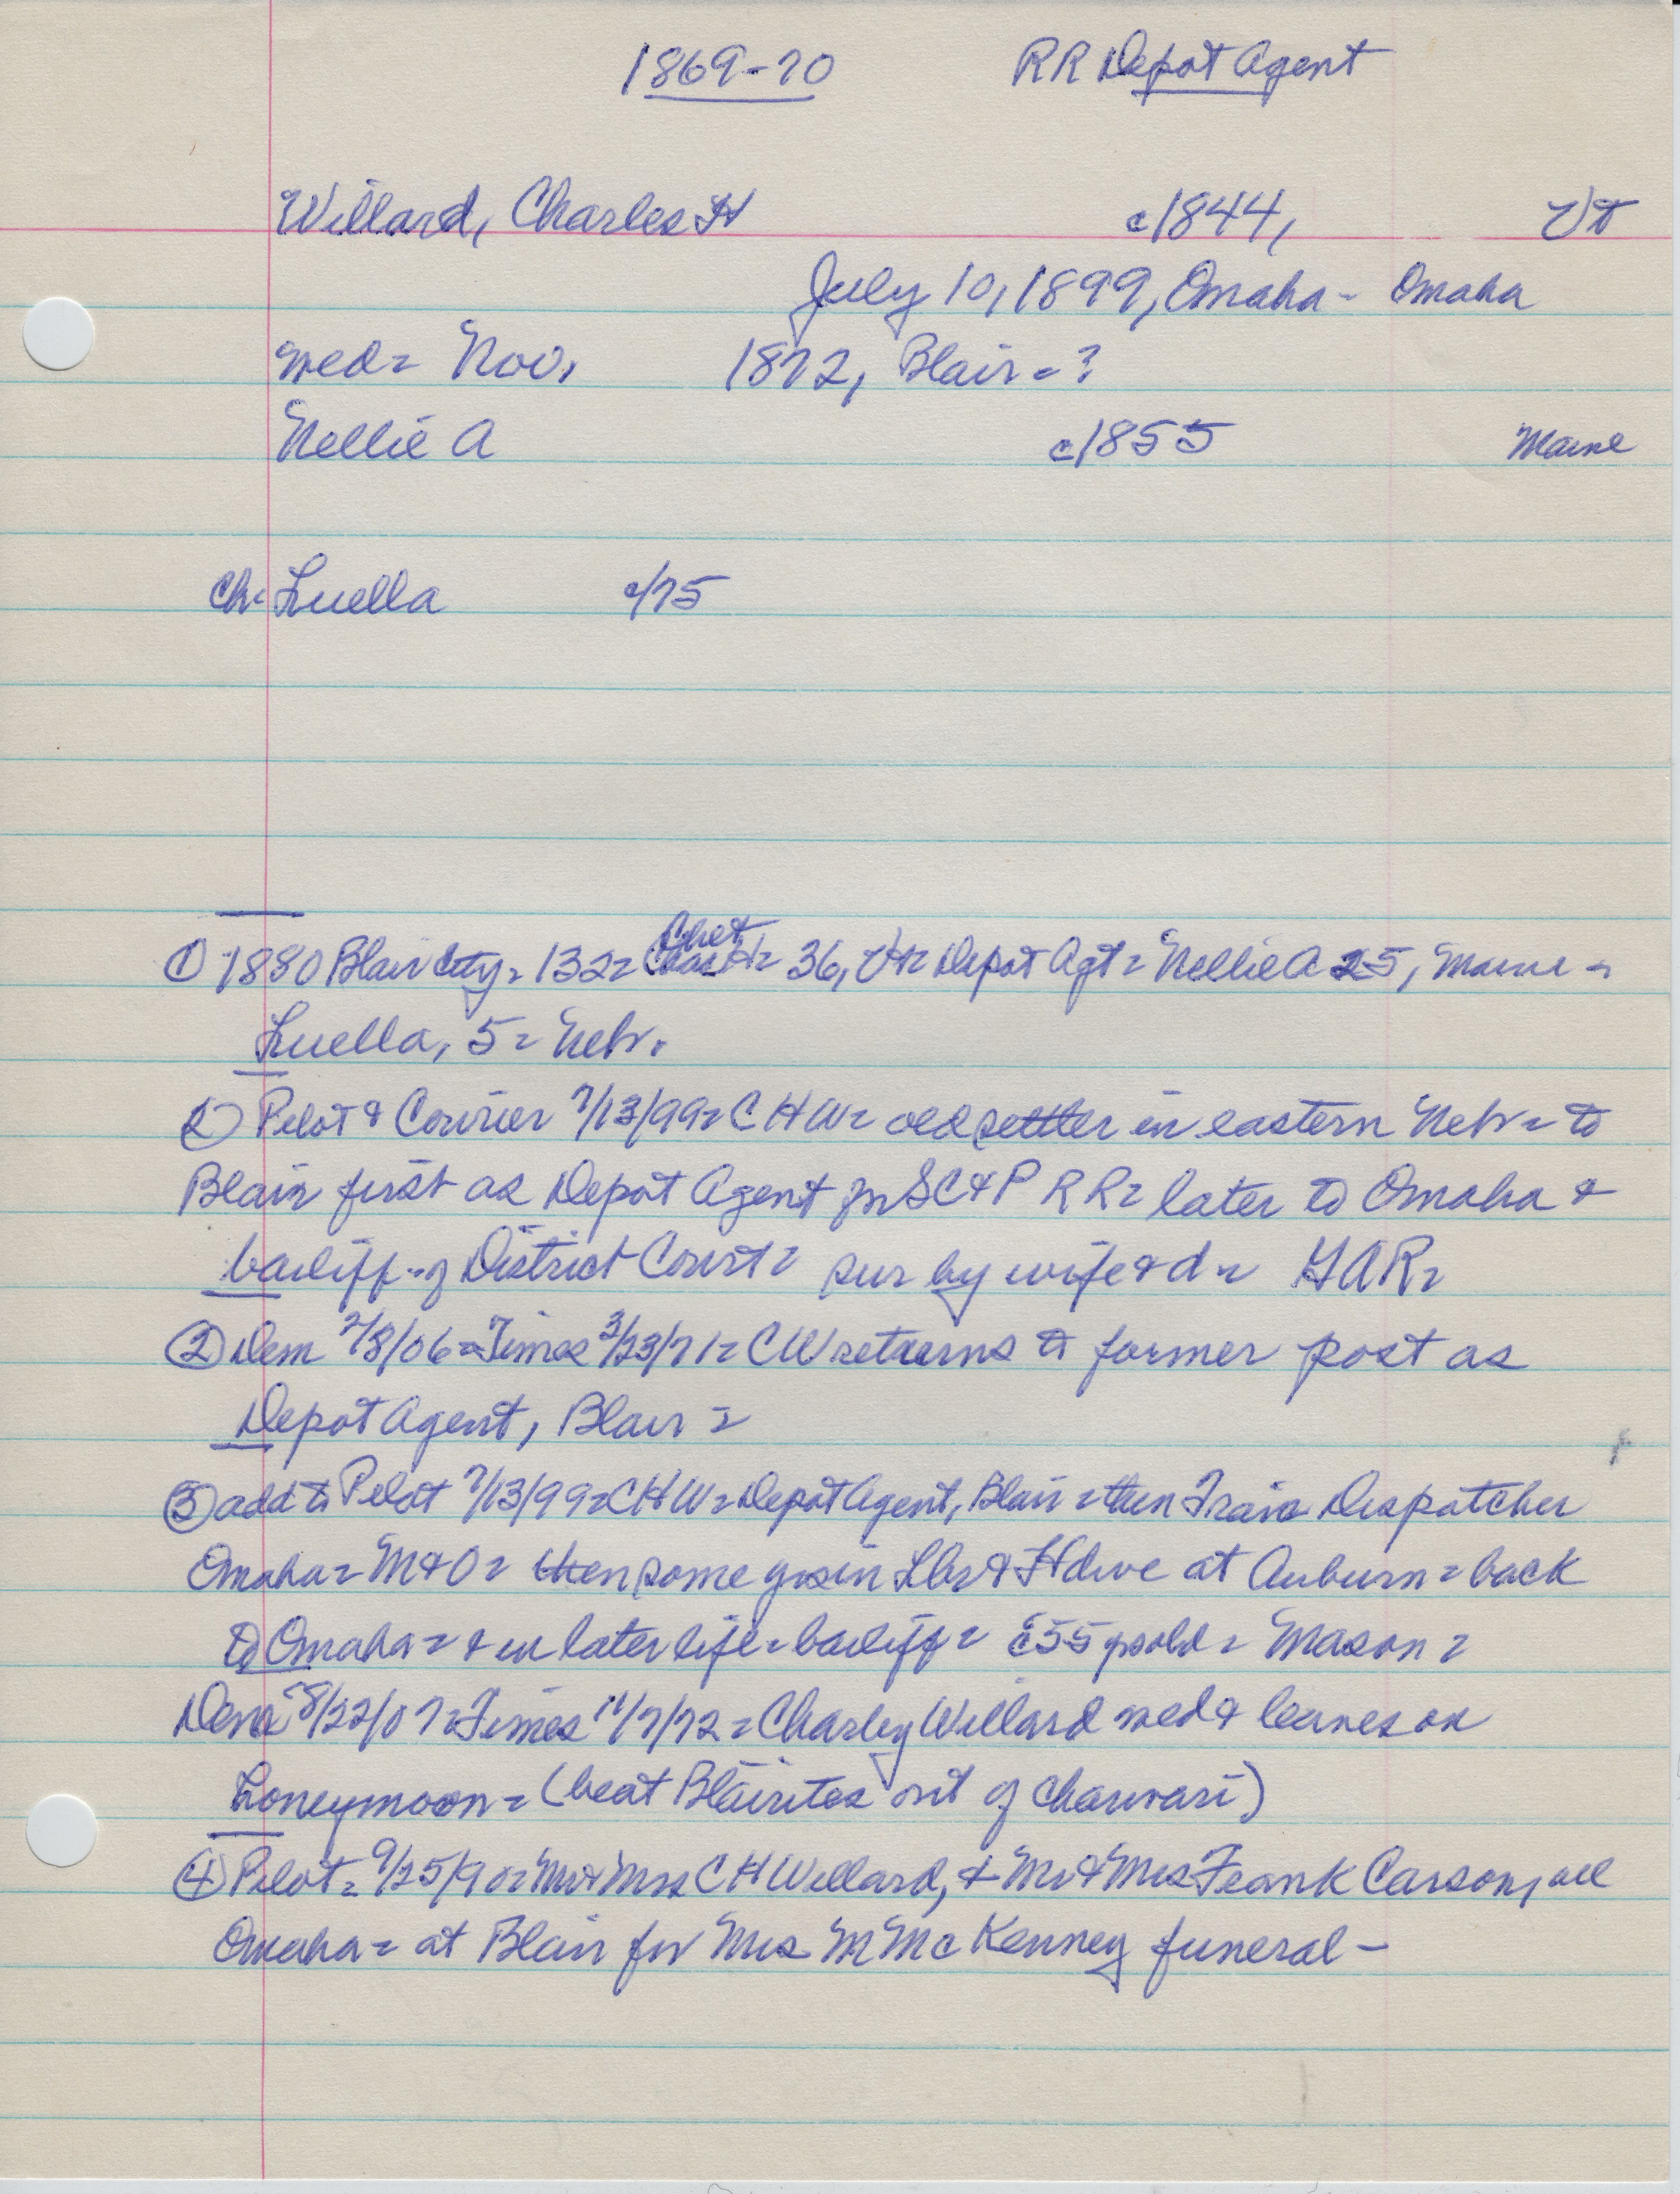 1869-70 RR Depot Agent
Willard, Charles H c1844, Vt
July 10, 1899, Omaha - Omaha
wed= Nov, 1872, Blair = ?
Nellie A c1855 Maine
Ch. Luella c/75
① 1880 Blair City = 132 = Chas H = 36, Vt = Depot Agt = Nellie A 25, Maine =
Chet
Luella, 5 = Nebr.
② Pilot & Courier 7/13/99 = C H W = old settler in eastern Nebr = to
Blair first as Depot Agent for SC&P RR = later to Omaha &
bailiff of District Court = sur by wife & d = GAR =
② Dem 2/8/06 = Times 3/23/71 = CW returns to former post as
Depot Agent, Blair =
③ add to Pilot 7/13/99 = CHW = Depot Agent, Blair = then Train Dispatcher
Omaha = M&O = then some yrs in Lbr & Hdwe at Auburn = back
to Omaha = & in later life = bailiff = c55 yrs old = Mason =
Dem 8/22/07 = Times 11/7/72 = Charley Willard wed & leaves on
honeymoon = (beat Blairites out of charivari)
④ Pilot = 9/25/90 = Mr & Mrs C H Willard, & Mr & Mrs Frank Carson, all
Omaha = at Blair for Mrs M McKenney funeral -